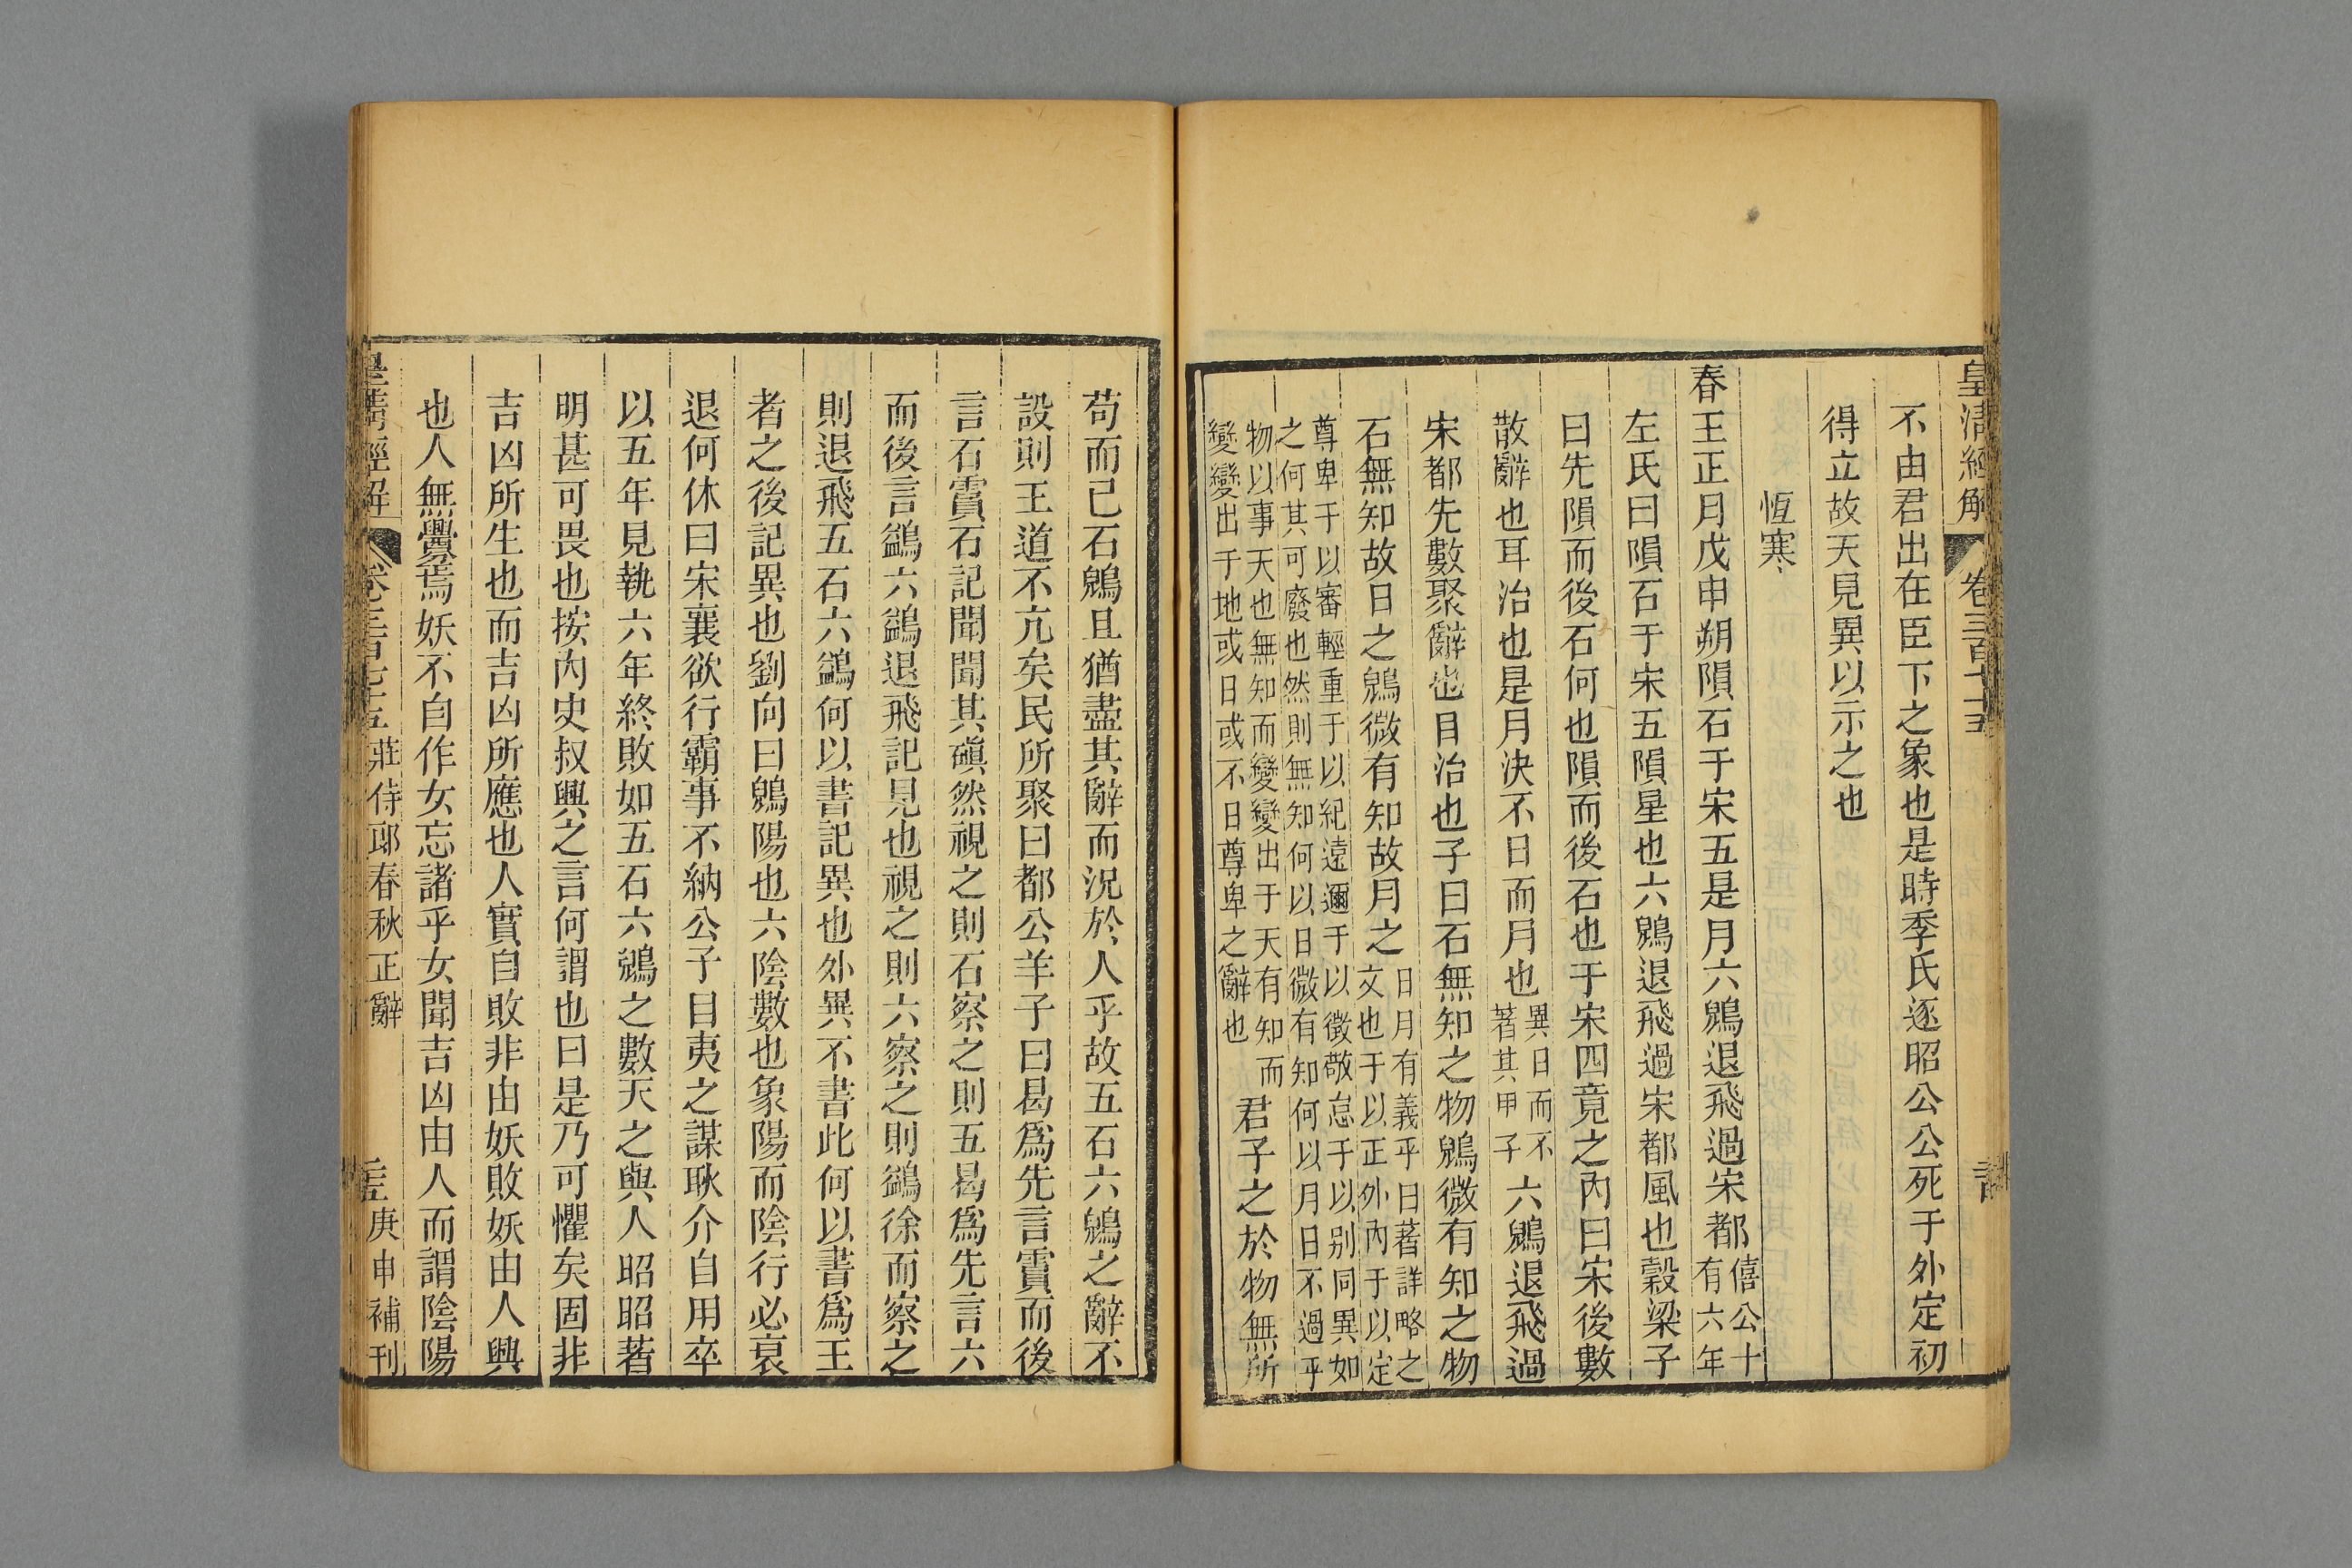 皇清經解 卷三百七十五
不由君出在臣下之象也是時季氏逐昭公公死于外定初
得立故天見異以示之也
恆寒
春王正月戊申朔隕石于宋五是月六鶂退飛過宋都僖公十有六年
左氏曰隕石于宋五隕星也六鶂退飛過宋都風也穀梁子
曰先隕而後石何也隕而後石也于宋四竟之內曰宋後數
散辭也耳治也是月決不日而月也異日而不著其甲子六鶂退飛過
宋都先數聚辭也目治也子曰石無知之物鶂微有知之物
石無知故日之鶂微有知故月之日月有義乎日著詳略之文也于以正外內于以定
尊卑于以審輕重于以紀遠邇于以徵敬怠于以别同異如之何其可廢也然則無知何以日微有知何以月日不過乎
物以事天也無知而變變出于天有知而變變出于地或日或不日尊卑之辭也君子之於物無所
苟而已石鶂且猶盡其辭而況於人乎故五石六鶂之辭不
設則王道不亢矣民所聚曰都公羊子曰曷爲先言霣而後
言石霣石記聞聞其磌然視之則石察之則五曷爲先言六
而後言鷁六鷁退飛記見也視之則六察之則鷁徐而察之
則退飛五石六鷁何以書記異也外異不書此何以書爲王
者之後記異也劉向曰鶂陽也六陰數也象陽而陰行必衰
退何休曰宋襄欲行霸事不納公子目夷之謀耿介自用卒
以五年見執六年終敗如五石六鶂之數天之與人昭昭著
明甚可畏也按內史叔興之言何謂也曰是乃可懼矣固非
吉凶所生也而吉凶所應也人實自敗非由妖敗妖由人興
也人無釁焉妖不自作女忘諸乎女聞吉凶由人而謂陰陽
皇清經解 卷三百七十五 莊侍郎春秋正辭 庚申補刊